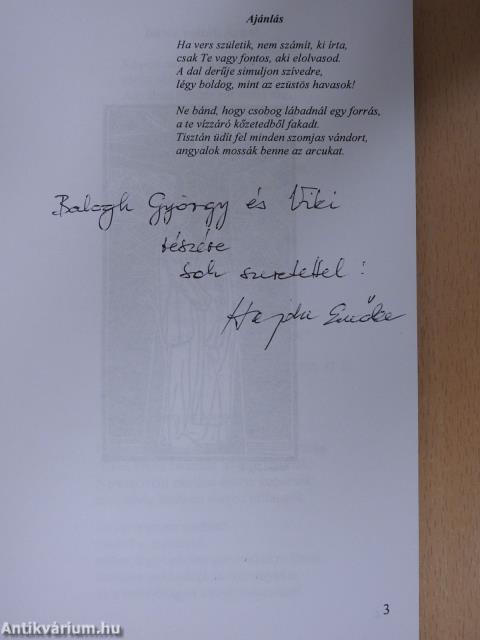 Ajánlás
Ha vers születik, nem számít, ki írta,
csak Te vagy fontos, aki elolvasod.
A dal derűje simuljon szívedre,
légy boldog, mint az ezüstös havasok!
Ne bánd, hogy csobog lábadnál egy forrás,
a te vízzáró kőzetedből fakadt.
Tisztán üdít fel minden szomjas vándort,
angyalok mossák benne az arcukat.
Balogh György és Viki
részére
sok szeretettel:
Hajdu Emőke
3
Antikvárium.hu